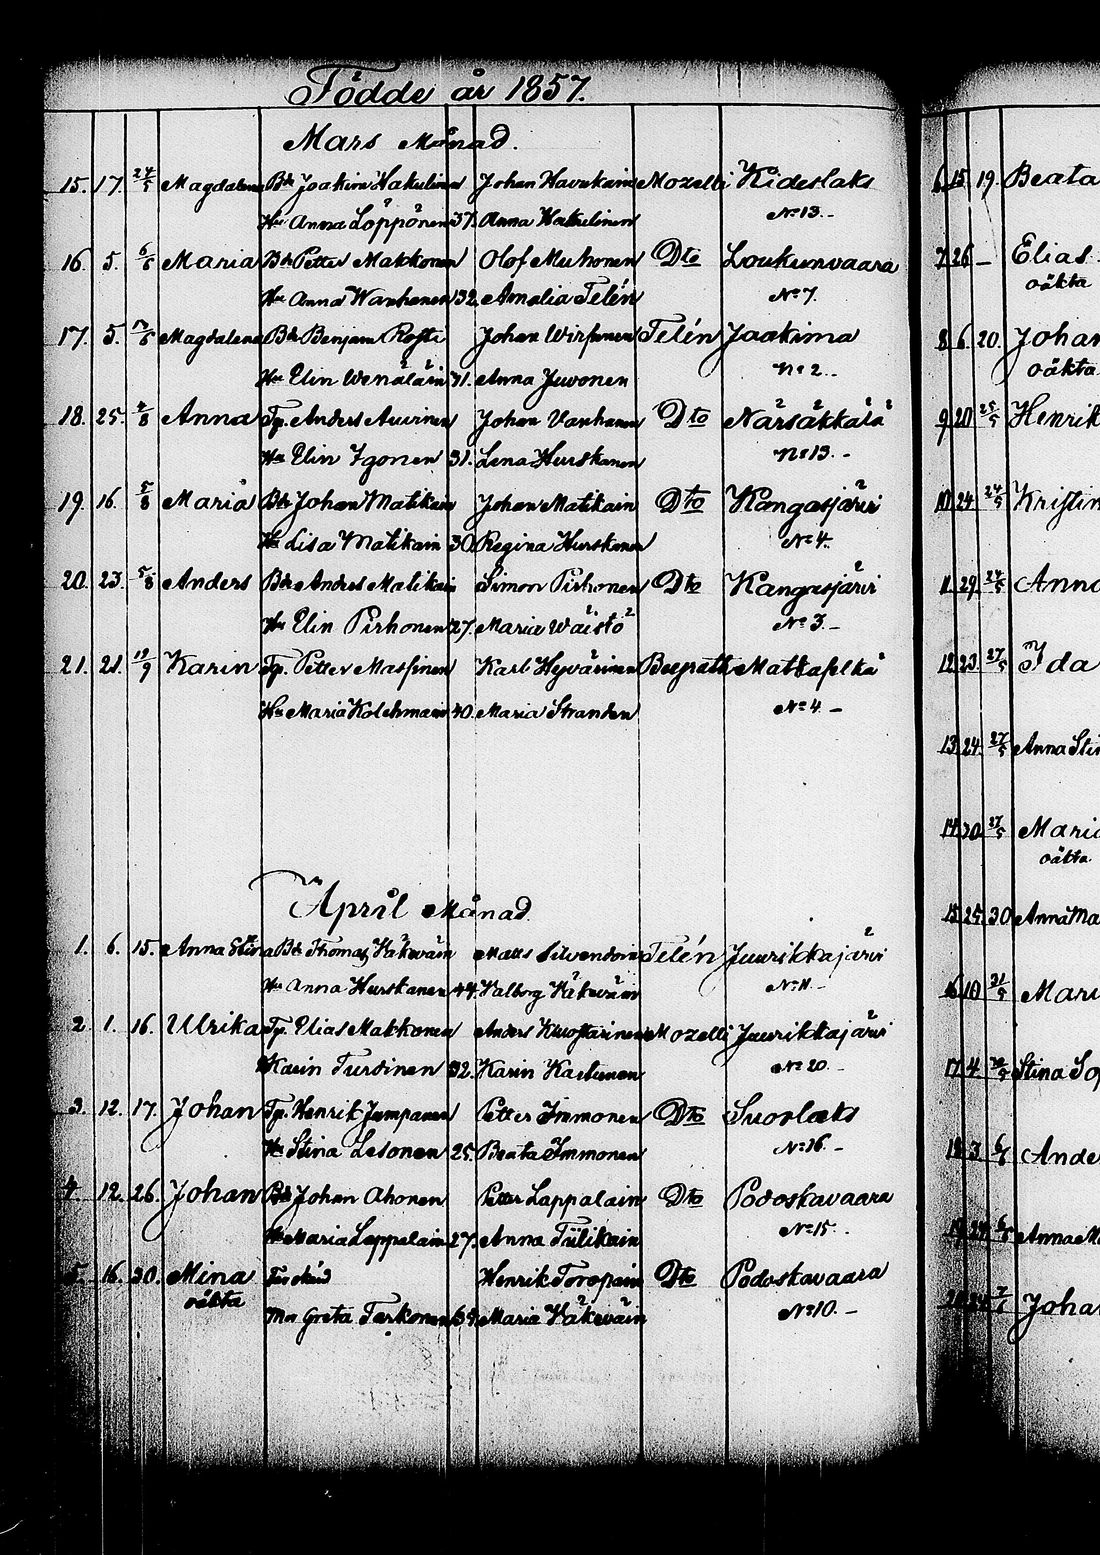 Födde år 1857.
Mars Månad.
15. 17. 24/5 Magdalena Bd Joakim Hakulinen Johan Havukain Mozelli Kideslaks
Hu Anna Löppönen 37. Anna Hakulinen No 13.
16. 5. 6/6 Maria Bd Petter Makkonen Olof Muhonen Dto Loukunvaara
Hu Anna Wanhanen 32. Amalia Telén No 7.
17. 5. Magdalena Bd Benjam Rossi Johan Wirfunen Telén Jaakima
Hu Elin Wenäläin 41. Anna Juvonen No 2.
18. 25. 2/8 Anna Tp. Anders Auvinen Johan Vanhanen Dto Närsäkkälä
Hu Elin Igonen 31. Lena Hurskanen No 13.
19. 16. 5/8 Maria Bd Johan Matikain Johan Matikain Dto Kangasjärvi
Hu Lisa Matikain 30. Regina Hurskanen No 4.
20. 23. 5/8 Anders Bd Andres Matikain Simon Pirhonen Dto Kangasjärvi
Hu Elin Pirhonen 27. Maria Wäistö No 3.
21. 21. 19/9 Karin Tp. Petter Massinen Karl Hyvärinen Bergrath Matkaselkä
Hu Maria Kolehmain 40. Maria Stranden No 4.
April Månad.
1. 6. 15. Anna Stina Bd Thomas Käkeväin Matts Silvendoin Telén Juurikkajärvi
Hu Anna Hurskanen 44. Valborg Käkeväin No 11.
2. 1. 16. Ulrika Tp. Elias Makkonen Anders Kuostarinen Mozelli Juurikkajärvi
Karin Turdinen 32. Karin Kartunen No 20.
3. 12. 17. Johan Tp. Henrik Jumpanen Petter Immonen Dto Suorlaks
Hu Stina Lesonen 25. Beata Immonen No 16.
4. 12. 26. Johan Bd Johan Ahonen Petter Lappalain Dto Podoskavaara
Hu Maria Lappalain 27. Anna Tiilikain No 15.
5. 16. 30. Mina Henrik Toropain Dto Podoskavaara
oäkta Mor Greta Tarkonen Maria Käkeväin No 10.
6 15. 19. Beata
7 26 – Elias
oäkta
8 6. 20. Johan
oäkta
9 20 25/5 Henrik
10 24 24/5 Kristin
11. 29. 24/5 Anna
12 23. 27/5 Ida
13 24. 27/5 Anna Stin
14 30 27/5 Maria
oäkta
15 25. 30 Anna Ma
16 10 31/5 Mari
17 4 Stina So
18 3. Ande
19 Anna M
Joha